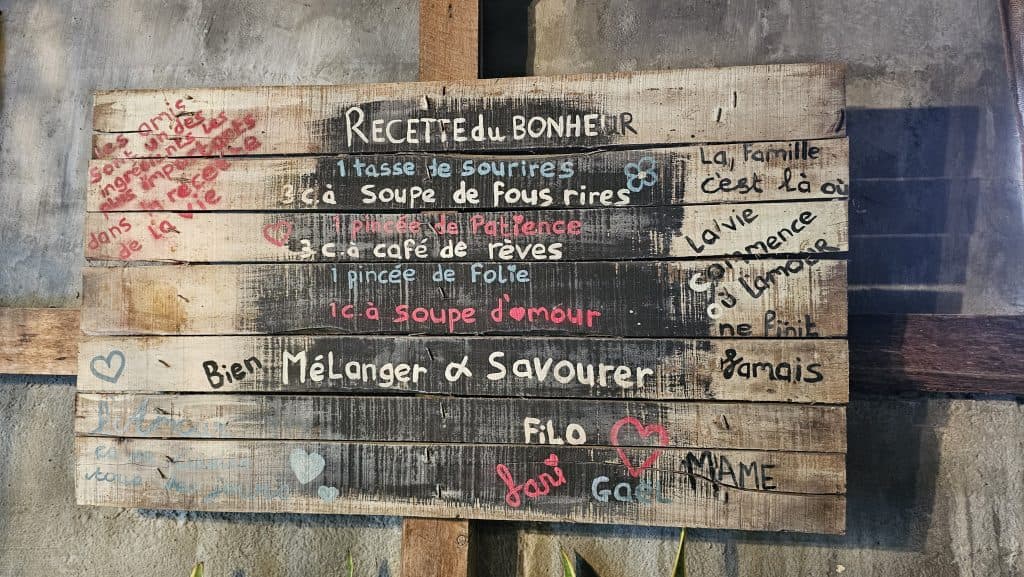 RECETTE du BONHEUR
1 tasse de sourires
3 c.à soupe de fous rires
1 pincée de Patience
3 c.à café de rêves
1 pincée de folie
1 c.à soupe d'amour
Bien Mélanger & Savourer
les amis
sont un des
ingrédients les
plus importants
dans la recette
de la vie
La famille
c'est là où
La vie
commence
où l'amour
ne finit
Jamais
L'Amour
ça se
tous les jours
FiLO
Jari
Gaël
MAME